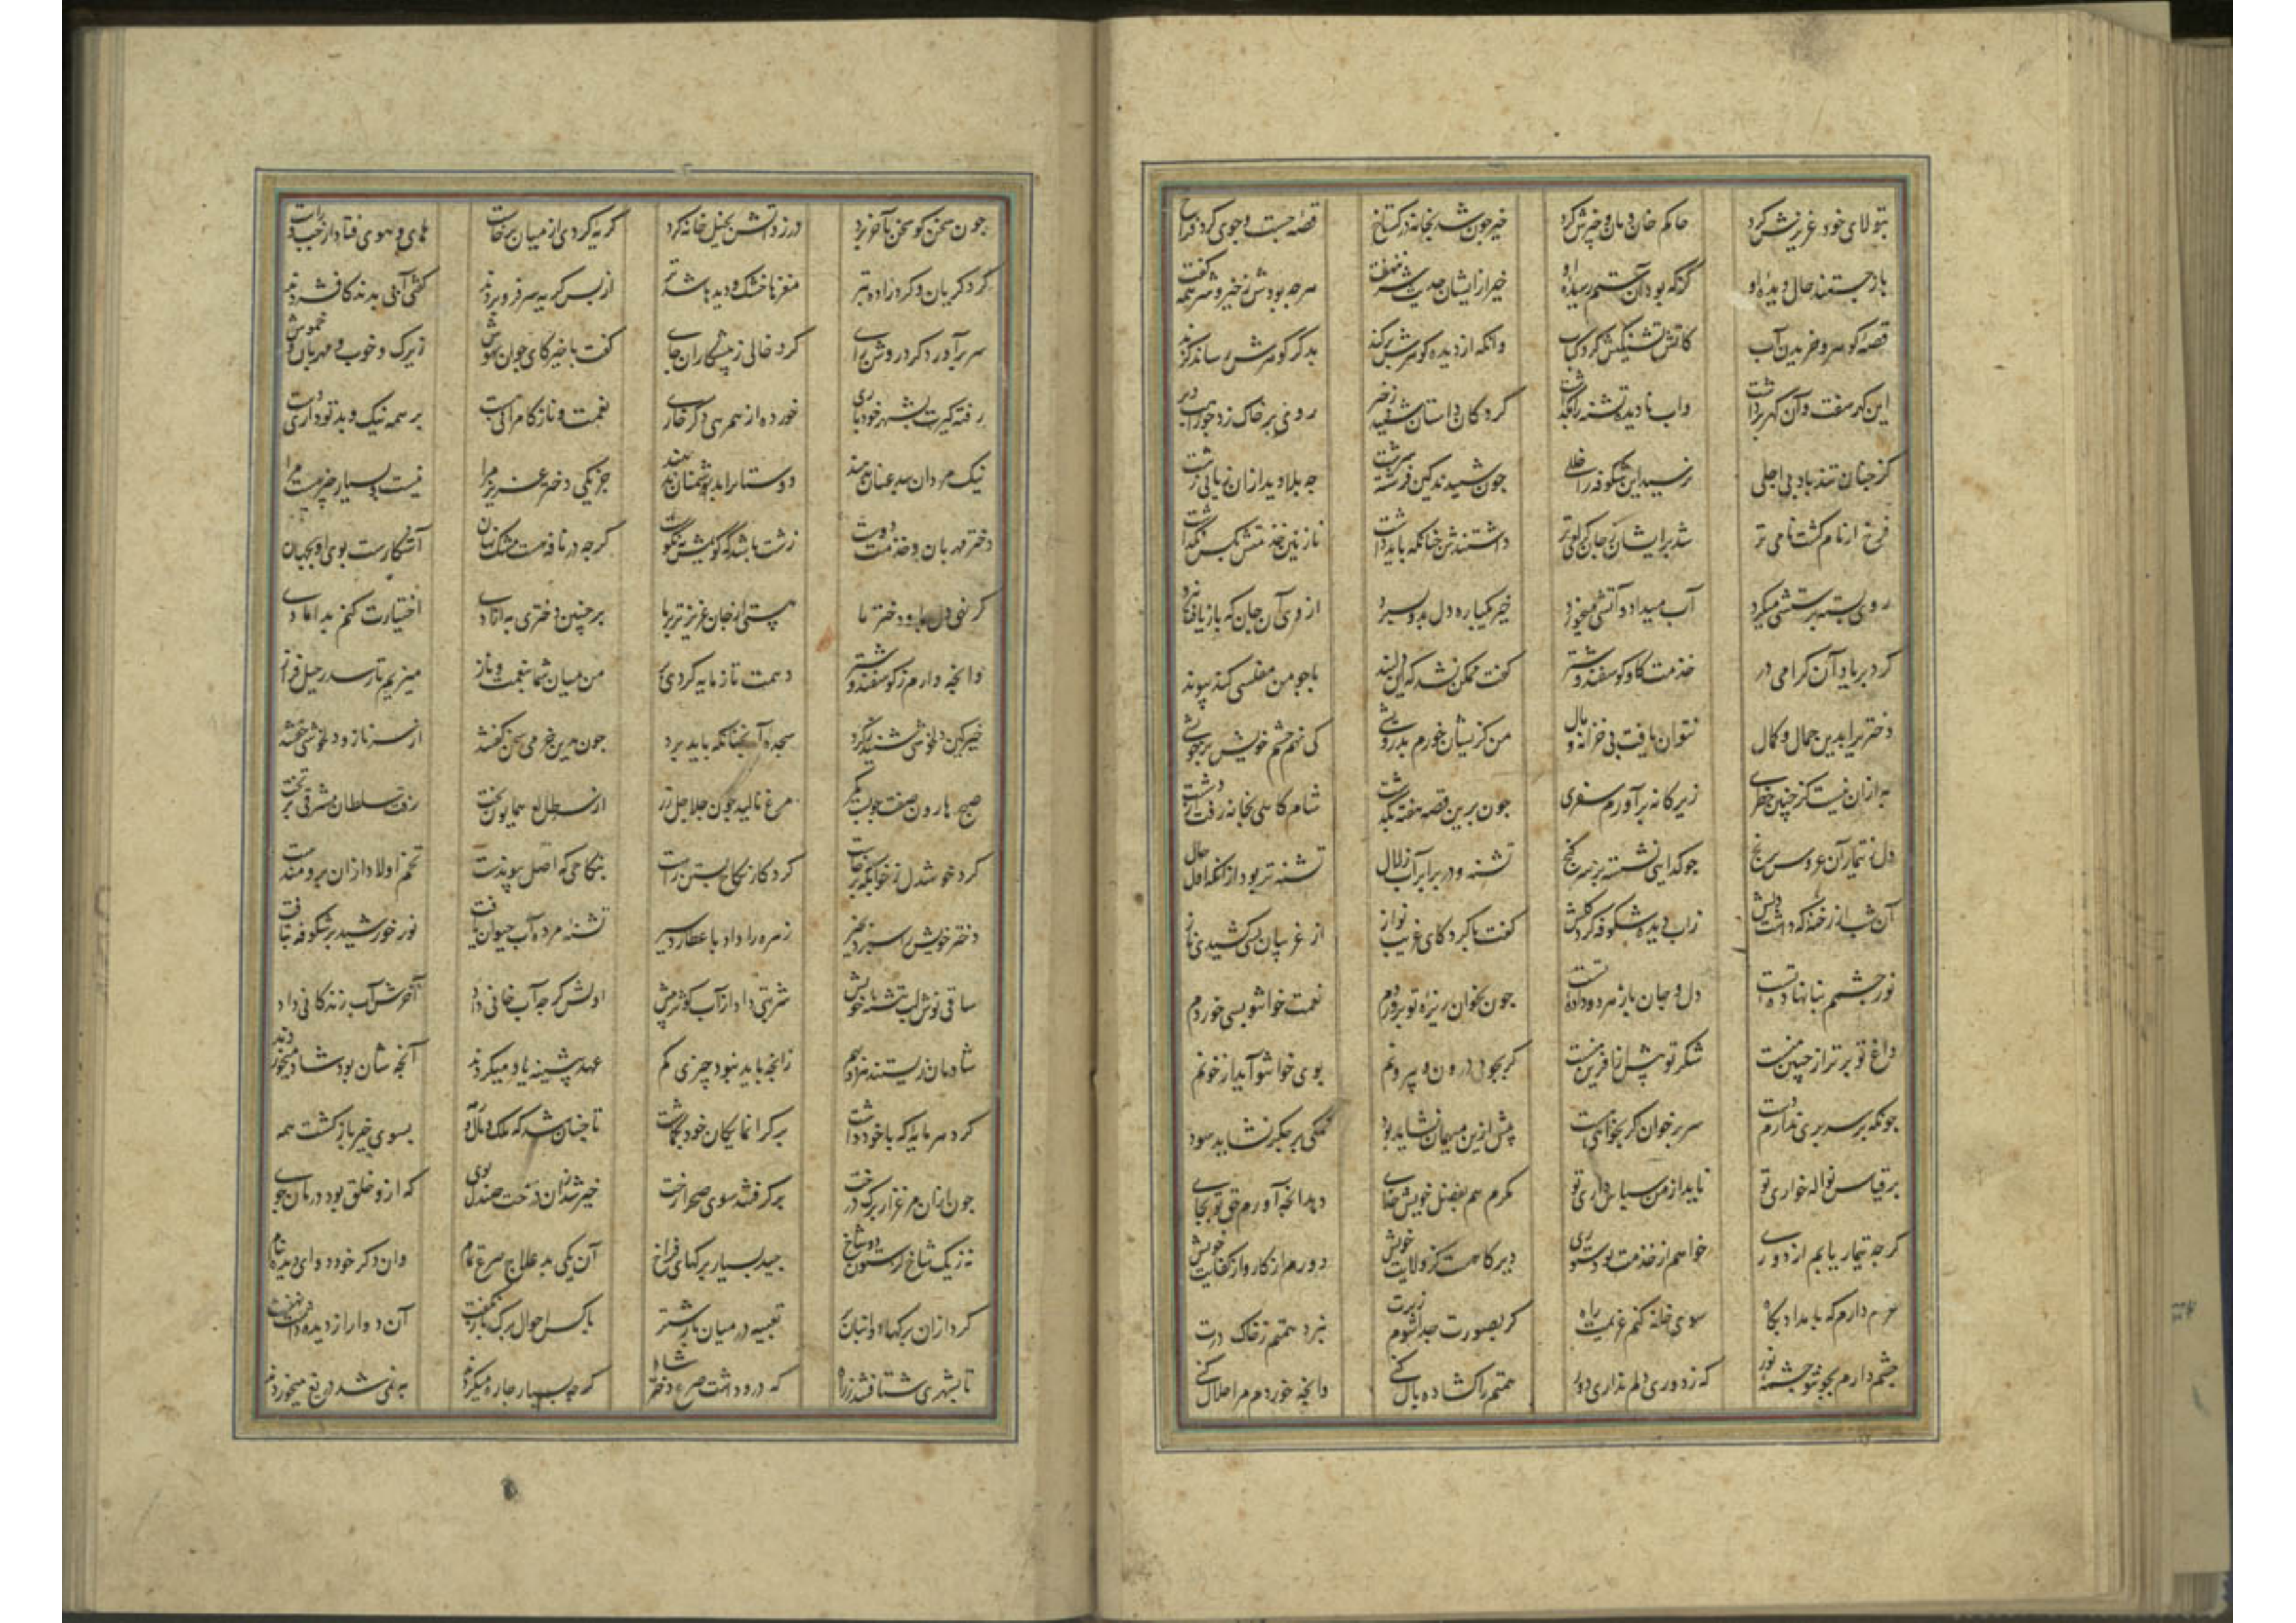 بتولای خود عزیزش کرد حاکم خان و مان و چیزش کرد خیر چون شد بخانه در گستاخ قصه جست و جوی کرد فراخ
باز جستند حال دیده او کز که بود آن ستم رسیده او خیر از ایشان حدیث شر ننهفت هرچه بودش ز خیر و شر همه گفت
قصه گوهر و خریدن آب کاتش تشنگیش کرد کباب وانکه از دیده گوهرش برکند بدگر گوهرش رساند گزند
این گهر سفت و آن گهر برداشت واب نادیده تشنه را بگذاشت کرد کان داستان شنید ز خیر روی بر خاک زد چو راهب دیر
کز چنان تندباد بی اجلی نرسید این شکوفه را خللی چون شنیدند کین فرشته سرشت چه بلا دید ازان زبانی زشت
فرخ از نام گشت نامی تر شد برایشان ز جان گرامی تر داشتندش چنانکه باید داشت نازنین خدمتش بکس نگذاشت
روی بسته پرستشی میکرد آب میداد و آتشی میخورد خیر یکباره دل بدو بسپرد از وی آن جان که باز یافت نبرد
کرد بر یاد آن گرامی در خدمت گاو و گوسفند و شتر گفت ممکن نشد که این دلبند با چو من مفلسی کند پیوند
دختریرا بدین جمال و کمال نتوان یافت بی خزانه و مال من کزیشان خورم بدرویشی کی نهم چشم خویش بر خویشی
به ازان نیست کز چنین خطری زیرکانه برآورم سفری چون برین قصه هفته بگذشت شامگاهی بخانه رفت ز دشت
دل ز تیمار آن عروس برنج چو گدایی نشسته بر سر گنج تشنه و در برابر آب زلال تشنه تر بود ازانکه اول حال
آن شب از رخنه که داشت دلش زاب دیده شکوفه کرد گلش گفت با کرد کای غریب نواز از غریبان بسی کشیدی ناز
نور چشمم بنا نهاده تست دل و جان باز مرد و داده تست چون بخوان ریزه تو پروردم نعمت خوان تو بسی خوردم
داغ تو برتر از جبین منست شکر تو بیش از آفرین منست گر بجویی درون و بیرونم بوی خوان تو آید از خونم
چونکه بر سر بری ندارم دست سر بر خوان گر بخواهی هست بیش ازین میهمان نشاید بود نمکی بر جگر نشاید سود
بر قیاس نواله خواری تو ناید از من سپاس داری تو مگرم هم بفضل خویش خدای دهد آنچه آورم حق تو بجای
گرچه تیمار یابم از دوری خواهم از خدمت تو دستوری دیرگاهست کز ولایت خویش دورم از کار و از کفایت خویش
عزم دارم که بامداد پگاه سوی خانه کنم عزیمت راه گر بصورت جدا شوم ز برت نبرد همتم ز خاک درت
چشم دارم بچو تو چشمه نور که ز دوری دلم نداری دور همتم را گشاده بال کنی وانچه خوردم مرا حلال کنی
چون سخن گو سخن بآخر برد در زد آتش بخیل خانه کرد گریه کردی از میان برخاست های و هوی فتاد از چپ و راست
کرد گریان و کردزاده بتر مغزها خشک و دیدها شد تر از بس گریه سر فرو بردند گفتی آبی بدند کافسردند
سر برآورد کرد روشن رای کرد خالی ز پیشکاران جای گفت با خیر کای جوان بهوش زیرک و خوب و مهربان و خموش
رفته گیرت بشهر خود باری خورده از همرهی دگر خاری نعمت و ناز و کامرانی هست بر همه نیک و بد تو داری دست
نیک مردان ببد عنان ندهند دوستانرا بدشمنان ندهند جز یکی دختر عزیز مرا نیست و بسیار چیز هست مرا
دختر مهربان و خدمت دوست زشت باشد که گویمش نه نکوست گرچه در نافه است مشک نهان آشکارست بوی او بجهان
گر نهی دل بما و دختر ما هستی از جان عزیزتر بر ما بر چنین دختری به آزادی اختیارت کنم بدامادی
وانچه دارم ز گوسفند و شتر دهمت تا ز مایه گردی پر من میان شما بنعمت و ناز میزیم تا رسد رحیل فراز
خیر کین دلخوشی شنید ز کرد سجده آنچنانکه باید برد چون برین خرمی سخن گفتند از سر ناز و دلخوشی خفتند
صبح هارون صفت چو بست کمر مرغ نالید چون جلاجل زر از سر طالع همایون بخت رفت سلطان مشرقی بر تخت
کرد خوشدل ز خوابگه برخاست کرد کار نکاح بستن راست بنکاحی که اصل پیوندست تخم اولاد ازان برومندست
دختر خویش را سپرد بخیر زهره را داد با عطارد سیر تشنه مرده آب حیوان یافت نور خورشید بر شکوفه بتافت
ساقی نوش لب بتشنه خویش شربتی داد از آب کوثر بیش اولش گرچه آب خانی داد آخرش آب زندگانی داد
شادمان زیستند هردو بهم زانچه باید نبود چیزی کم عهد پیشینه یاد میکردند آنچه شان بود شاد میخوردند
کرد هر مایه که با خود داشت بر گرانمایگان خود بگماشت تا چنان شد که ملک و مال و رمه بسوی خیر بازگشت همه
چون ازان مرغزار برگ درخت برگرفتند سوی صحرا رخت خیر شد زان درخت صندل بوی که ازو خلق بود درمان جوی
نز یک شاخ کز ستون دو شاخ چید بسیار برگهای فراخ آن یکی بد علاج صرع تمام وان دگر خود دوای دیده بنام
کرد ازان برگها دو انبان پر تعبیه در میان بار شتر با کس احوال برگ باز نگفت آن دوا را ز دیده داشت نهفت
تا بشهری شتافتند ز راه که درو داشت صرع دختر شاه گرچه بسیار چاره میکردند به نمی شد دریغ میخوردند